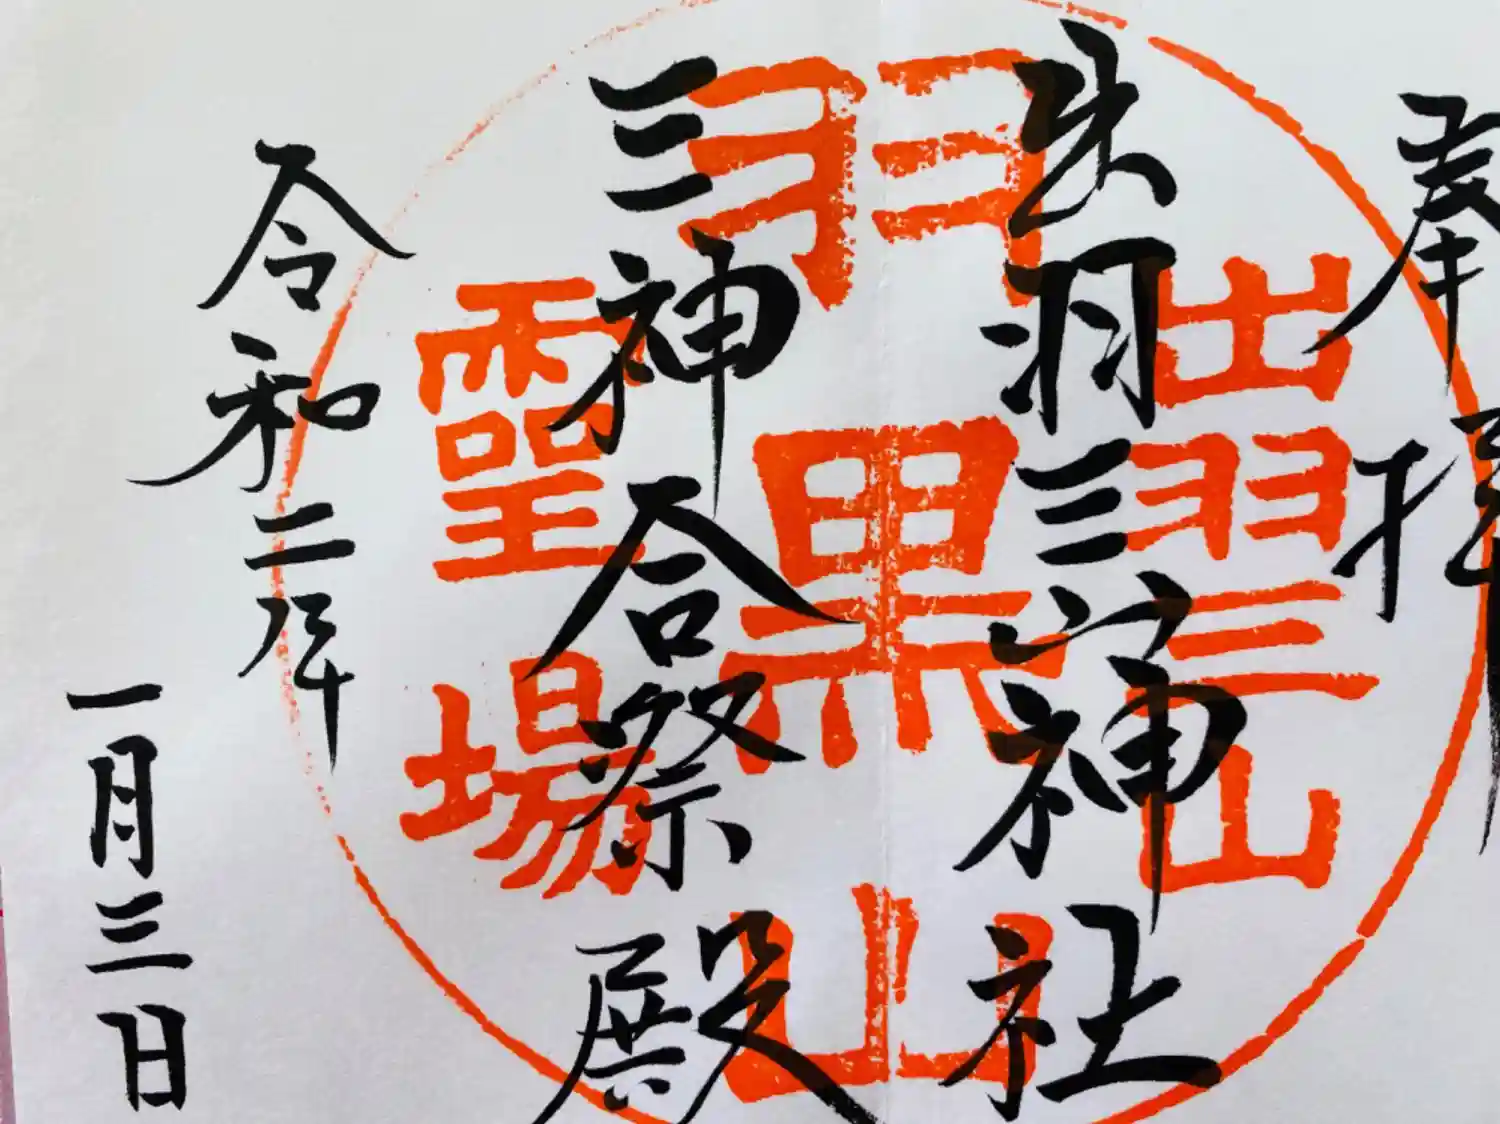 奉拝
出羽三山神社
三神合祭殿
令和二年
一月三日
出羽三山
羽黒山
靈場